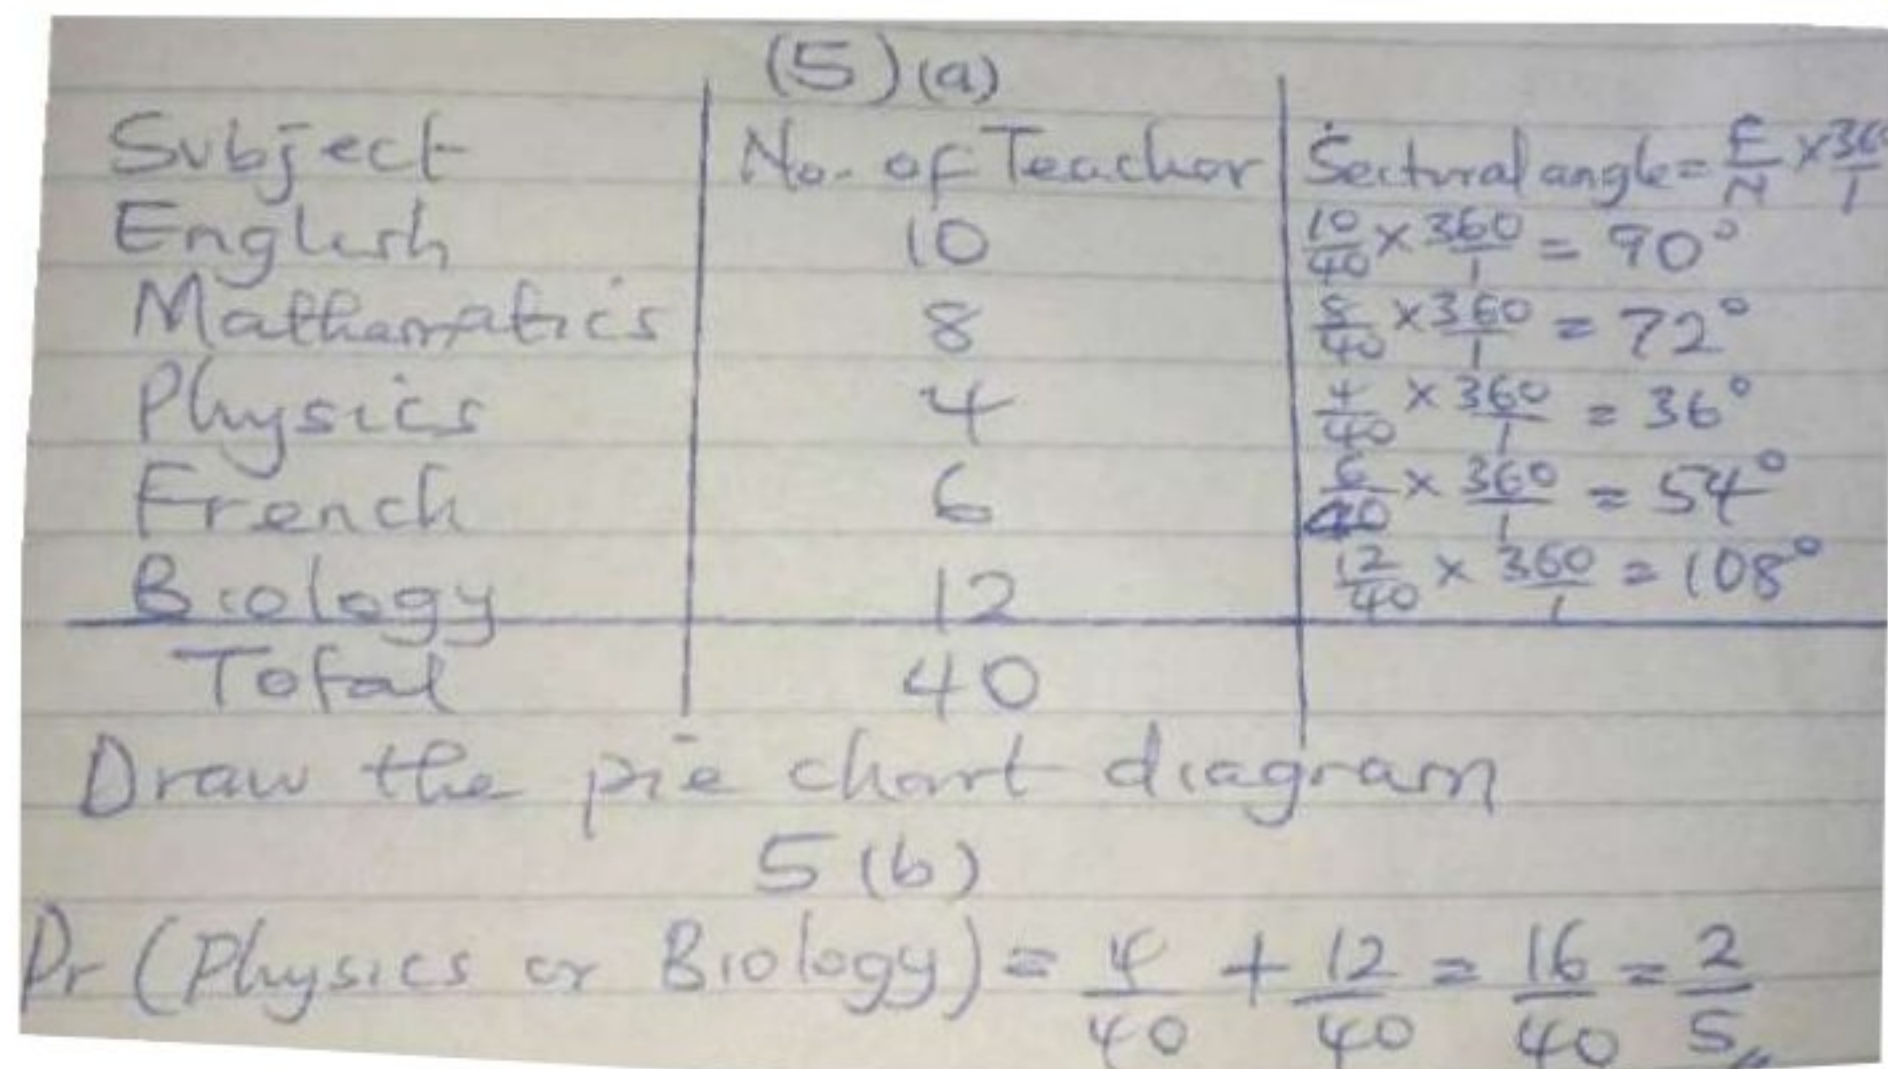 (5)(a)
Subject No. of Teacher Sectural angle = F/N × 360/1
English 10 10/40 × 360/1 = 90°
Mathematics 8 8/40 × 360/1 = 72°
Physics 4 4/40 × 360/1 = 36°
French 6 6/40 × 360/1 = 54°
Biology 12 12/40 × 360/1 = 108°
Total 40
Draw the pie chart diagram
5(b)
Pr (Physics or Biology) = 4/40 + 12/40 = 16/40 = 2/5